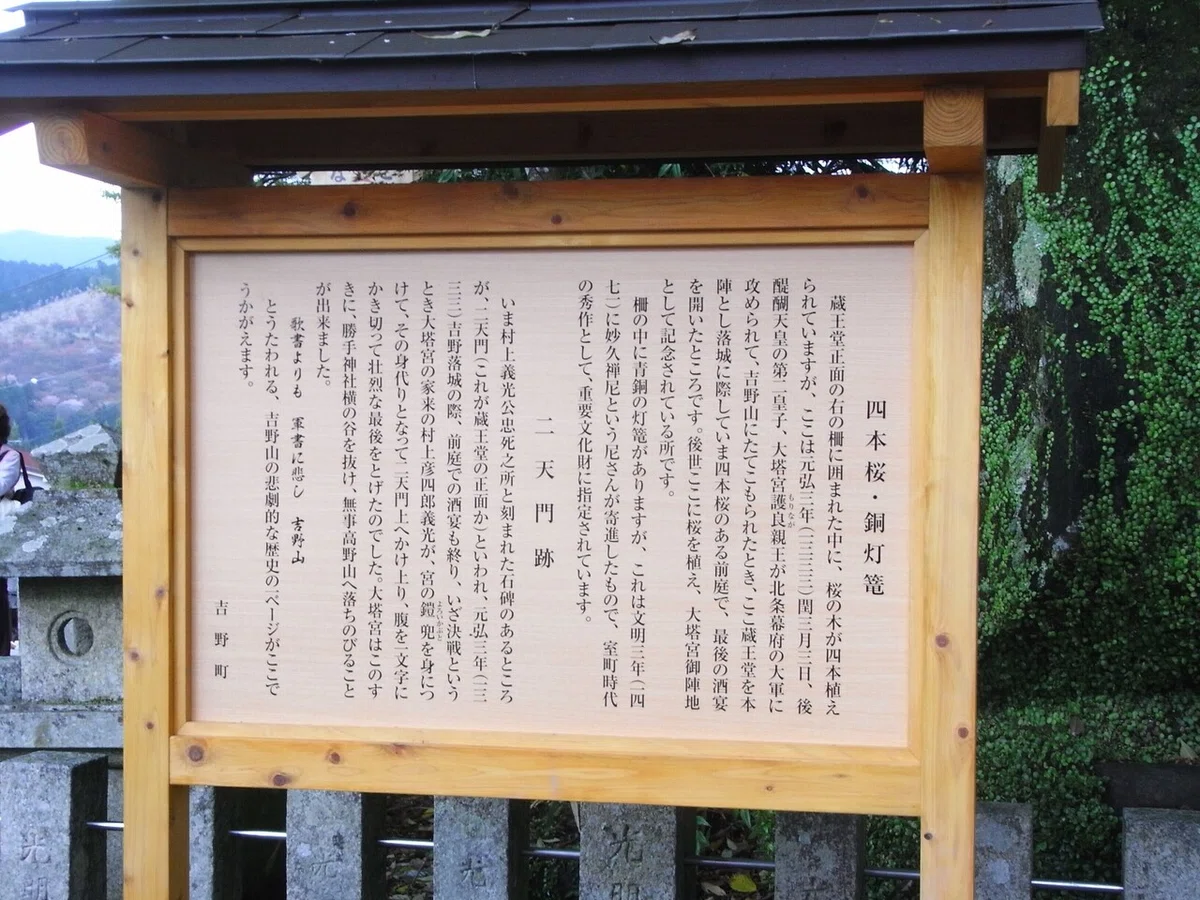 四本桜・銅灯篭
蔵王堂正面の石の柵に囲まれた中に、桜の木が四本植え
られていますが、ここは元弘三年(一三三三)閏三月三日、後
醍醐天皇の第二皇子、大塔宮護良親王が北条幕府の大軍に
もりなが
攻められて、吉野山にたてこもられたとき、ここ蔵王堂を本
陣とし落城に際していま四本桜のある前庭で、最後の酒宴
を開いたところです。後世ここに桜を植え、大塔宮御陣地
として記念されている所です。
柵の中に青銅の灯篭がありますが、これは文明三年(一四
七一)に妙久禅尼という尼さんが寄進したもので、室町時代
の秀作として、重要文化財に指定されています。
二天門跡
いま村上義光公忠死之所と刻まれた石碑のあるところ
が、二天門(これが蔵王堂の正面か)といわれ、元弘三年(一三
三三)吉野落城の際、前庭での酒宴も終り、いざ決戦という
とき大塔宮の家来の村上彦四郎義光が、宮の鎧兜を身につ
よろいかぶと
けて、その身代りとなって二天門上へかけ上り、腹を一文字に
かき切って壮烈な最後をとげたのでした。大塔宮はこのす
きに、勝手神社横の谷を抜け、無事高野山へ落ちのびること
が出来ました。
歌書よりも 軍書に悲し 吉野山
とうたわれる、吉野山の悲劇的な歴史の一ページがここで
うかがえます。
吉野町
光明
光
光
光明